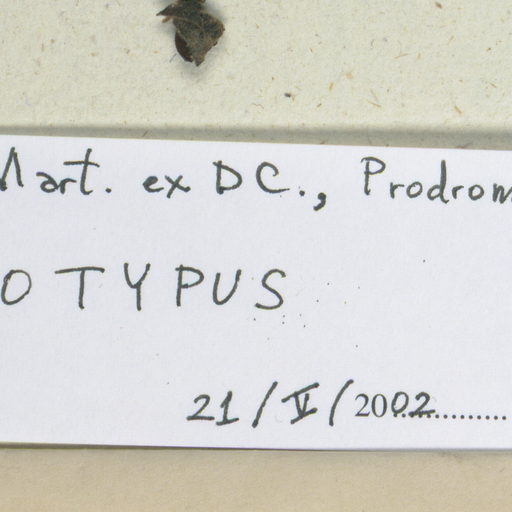 Mart. ex DC., Prodrom
OTYPUS
21/V/2002